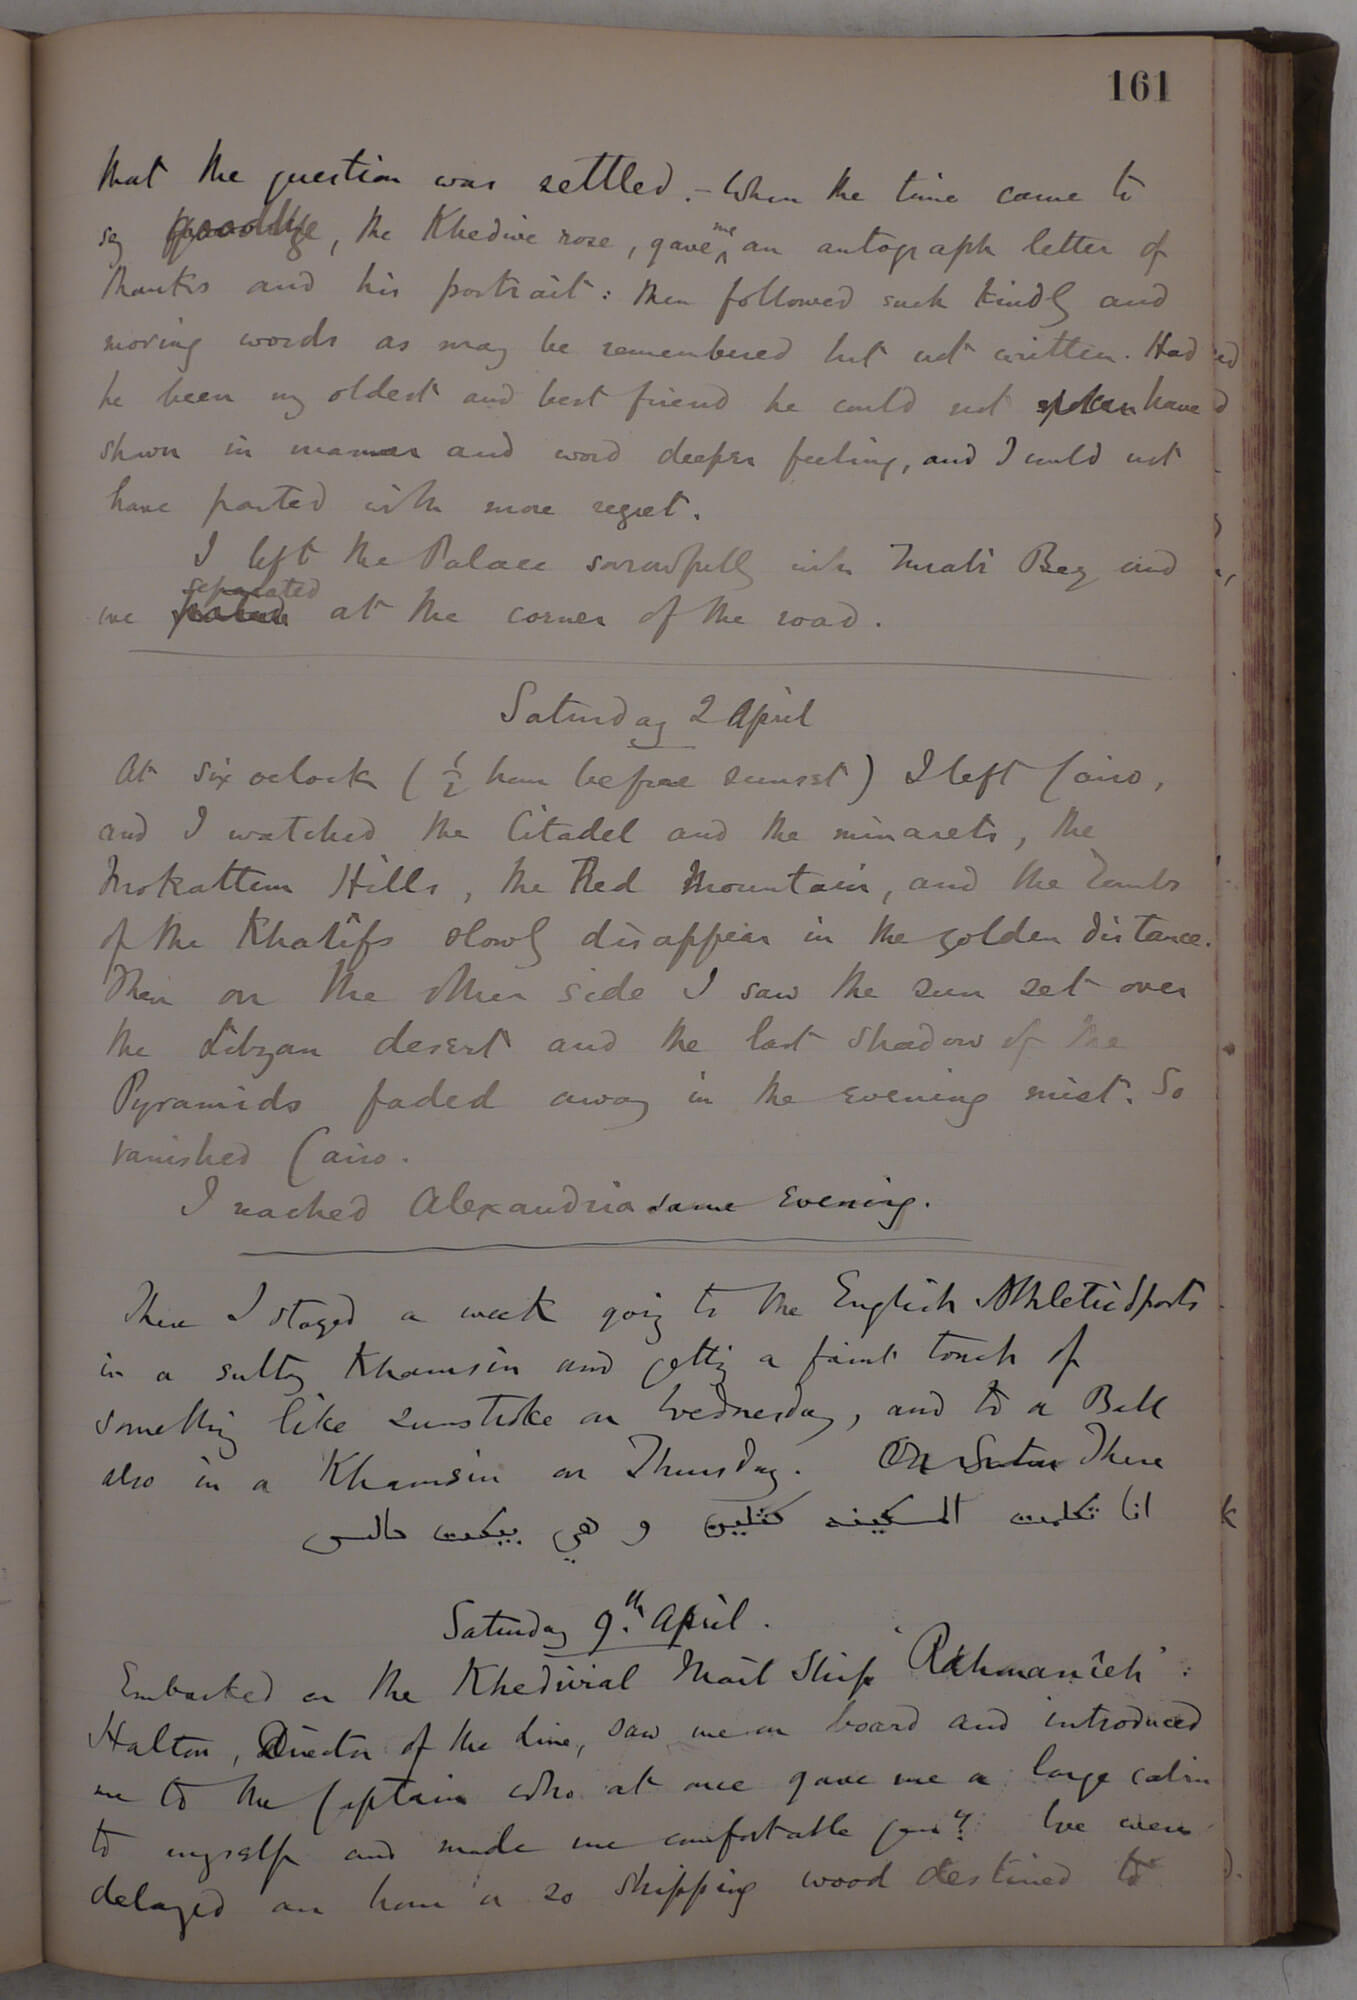 161
that the question was settled. – When the time came to
say goodbye, the Khedive rose, gave me an autograph letter of
thanks and his portrait: then followed such kindly and
moving words as may be remembered but not written. Had
he been my oldest and best friend he could not spoken have
shown in manner and word deeper feeling, and I could not
have parted with more regret.
I left the Palace sorrowfully with Turabi Bey and
separated
we parted at the corner of the road.
Saturday 2 April
At six oclock (½ hour before sunset) I left Cairo,
and I watched the Citadel and the minarets, the
Mokattem Hills, the Red Mountain, and the Tombs
of the Khalîfs slowly disappear in the golden distance.
Then on the other side I saw the sun set over
the Libyan desert and the last shadow of the
Pyramids faded away in the evening mist. So
vanished Cairo.
I reached Alexandria same evening.
There I stayed a week going to the English Athletic Sports
in a sultry Khamsin and getting a faint touch of
something like sunstroke on Wednesday, and to a Ball
also in a Khamsin on Thursday. On Satur There
انا تكلمت المسكينه كثلين و هي بيكت
Saturday 9th. April.
Embarked on the Khedivial Mail Ship 'Rahmanîeh':
Halton, Director of the Line, saw me on board and introduced
me to the Captain who at once gave me a large cabin
to myself and made me comfortable We were
delayed an hour or so shipping wood destined to